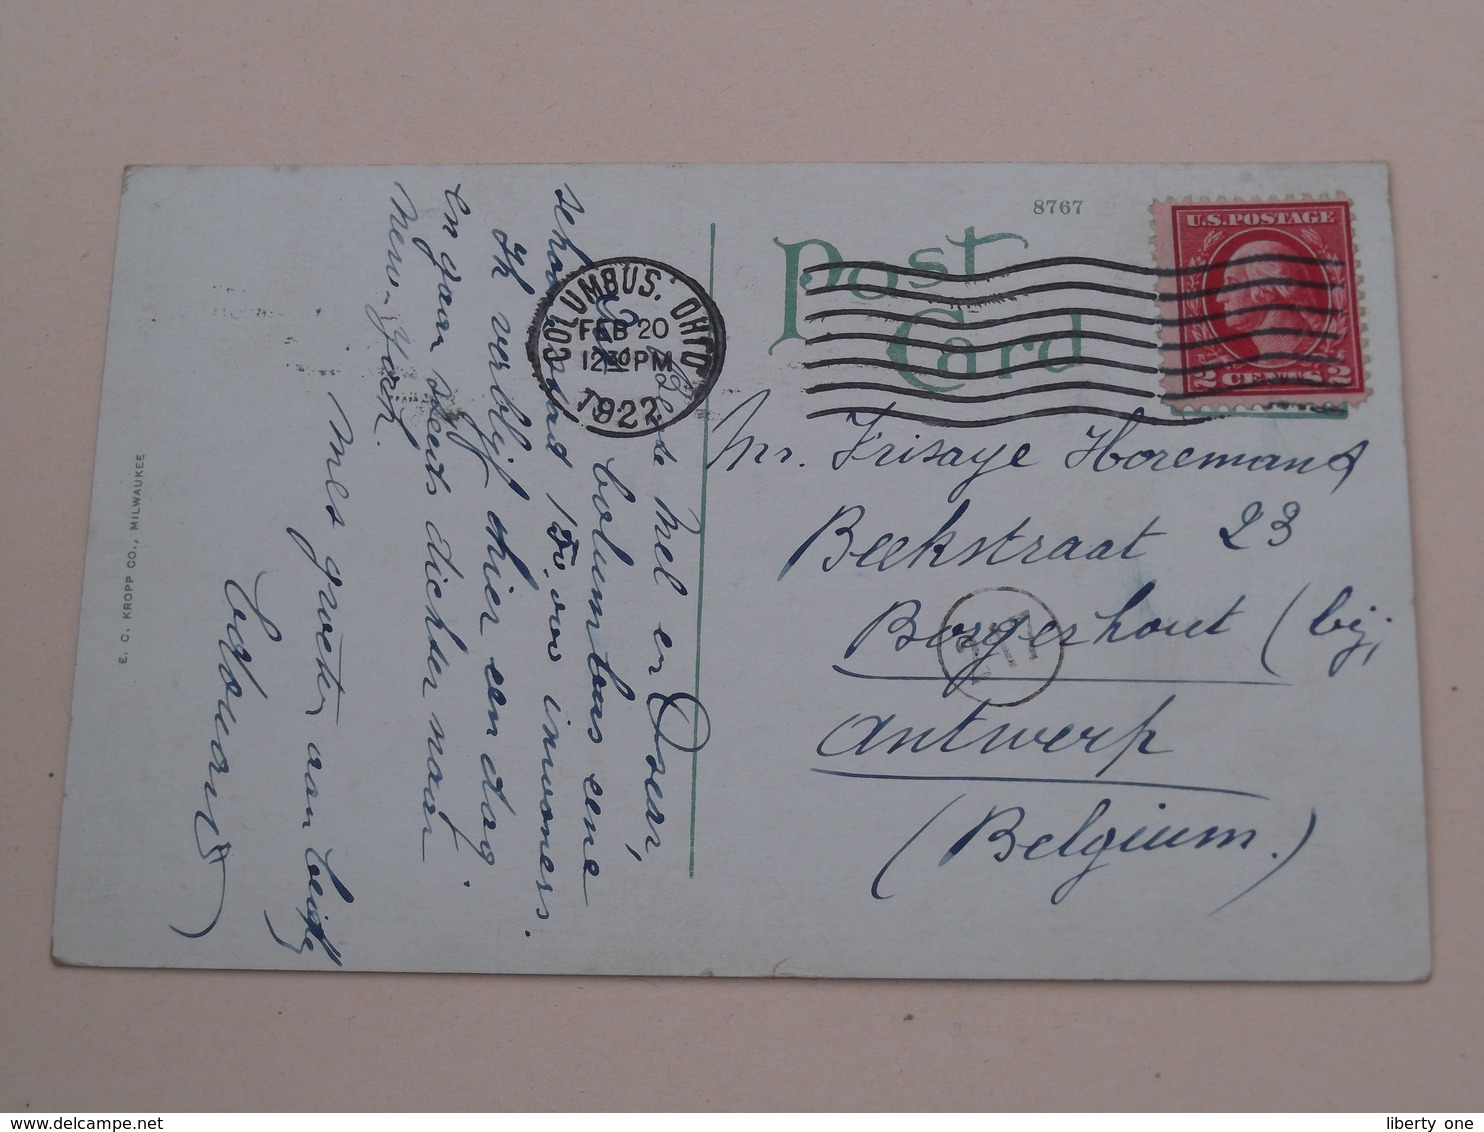 8767
Post
Card
U.S. POSTAGE
2 CENTS 2
COLUMBUS, OHIO
FEB 20
12 30 PM
1922
Beste Nel en
Columbus eene
schoone stad 150,000 inwoners.
Ik verblijf hier een dag
en gaan steeds dichter naar
New-York.
Mles groeten aan beide
Edouard
Mr. Frisaye Horemans
Beekstraat 23
Borgerhout (bij
Antwerp
(Belgium.)
217
E. C. KROPP CO., MILWAUKEE
liberty one